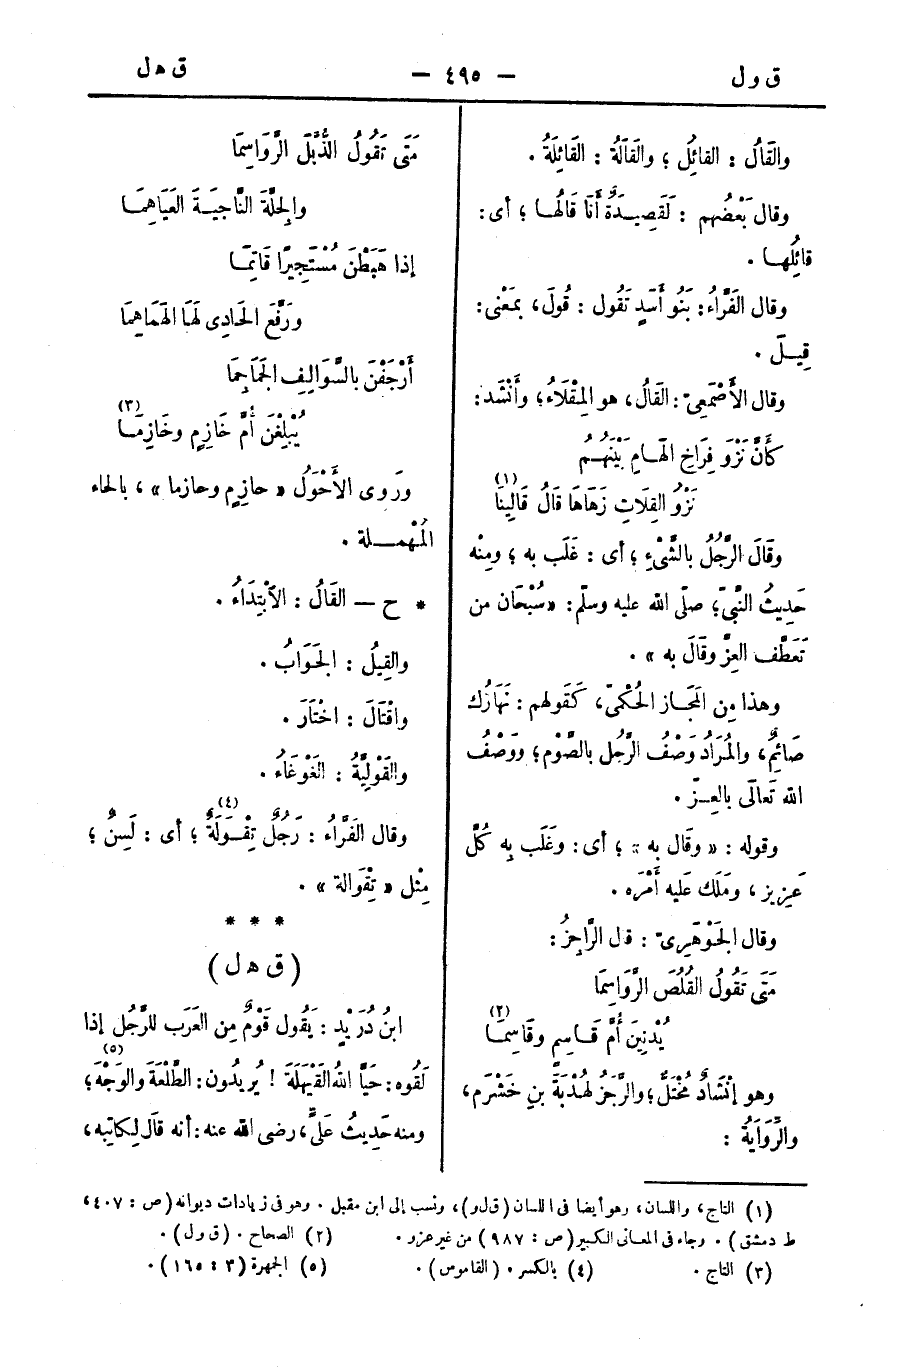 ق ول
— ٤٩٥ —
ق هل
والقَالُ : القائِل ؛ والقَالَةُ : القَائِلَةُ .
وقال بَعْضُهم : لَقَصِيدَةٌ أَنَا قَالُها ؛ أى :
قائِلُها .
وقال الفَرَّاءُ : بَنُو أَسَدٍ تَقُول : قُولَ، بمَعْنى :
قِيلَ .
وقال الأَصْمَعِىّ : القَالُ، هو المِقْلَاءُ؛ وأَنْشَد :
كَأَنَّ نَزْوَ فِرَاخِ الهَامِ بَيْنَهُمُ
نَزْوُ القِلَاتِ زَهَاهَا قَالُ قَالِينَا (١)
وقَالَ الرَّجُلُ بالشَّىْءِ ؛ أى : غَلَب به ؛ ومِنْه
حَدِيثُ النَّبِىّ؛ صلّى الله عليه وسلّم : « سُبْحَان من
تَعَطَّف العِزَّ وقَالَ به » .
وهذا مِن المَجَاز الحُكْمِىّ، كَقَولهم : نَهَارُك
صَائِمٌ، والمُرَادُ وَصْفُ الرَّجُل بالصَّوْم؛ ووَصْفُ
الله تَعالَى بالعِزّ .
وقوله : « وقَال به » ؛ أى : وغَلَب بِه كُلَّ
عَزِيز ، ومَلَك عَليه أَمْرَه .
وقال الجَوْهَرِىّ : قال الرَّاجِزُ :
مَتَى تَقُولُ القُلُصَ الرَّوَاسِمَا
يُدْنِينَ أُمَّ قَاسِمٍ وقَاسِمَا (٢)
وهو إنْشَادٌ مُخْتَلّ؛ والرَّجَزُ لهُدْبَةَ بنِ خَشْرَم،
والرِّوَايَةُ :
مَتَى تَقُولُ الذُّبَّلَ الرَّوَاسِمَا
والجِلَّةَ النَّاجِيَةَ العَيَاهِمَا
إذا هَبَطْنَ مُسْتَجِيرًا قَاتِمَا
ورَفَّعَ الحَادِى لَهَا الهَمَاهِمَا
أَرْجَفْنَ بالسَّوَالِفِ الجَمَاجِمَا
يُبْلِغْنَ أُمَّ خَازِمٍ وخَازِمَا (٣)
ورَوى الأَحْوَلُ « حازِمٍ وحازما » ، بالحاء
المُهْملة .
* ح — القَالُ : الاْبتِدَاءُ .
والقِيلُ : الجَوَابُ .
واقْتَالَ : اخْتَارَ .
والقَوْلِيَّةُ : الغَوْغَاءُ .
وقال الفَرَّاءُ : رَجُلٌ تِقْوَلَةٌ (٤) ؛ أى : لَسِنٌ ؛
مِثل « تِقْوالة » .
* * *
( ق هل )
ابنُ دُرَيْدٍ : يَقُول قَوْمٌ مِن العَرَب للرَّجُل إذا
لَقُوه : حَيَّا اللهُ القَيْهَلَةَ ! يُريدُون : الطَّلْعَةَ والوَجْهَ (٥) ؛
ومنه حَدِيثُ عَلىّ، رضى الله عنه : أنه قال لِكاتِبه،
(١) التاج، واللسان، وهو أيضا فى اللسان (قلو)، ونسب إلى ابن مقبل . وهو فى زيادات ديوانه (ص : ٤٠٧،
ط دمشق) . وجاء فى المعانى الكبير (ص : ٩٨٧) من غير عزو . (٢) الصحاح . (ق ول) .
(٣) التاج . (٤) بالكسر . (القاموس) . (٥) الجمهرة (٣ : ١٦٥) .